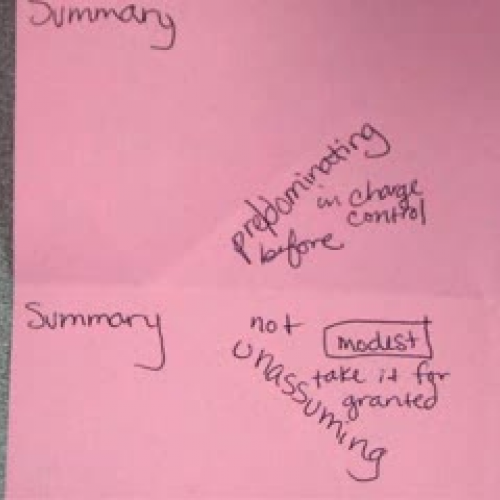 Summary
pre/dominating
in charge
control
before
Summary
not
modest
unassuming
take it for
granted